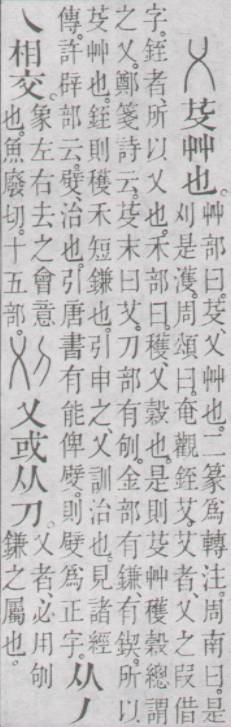 乂 芟艸也。艸部曰。芟、乂艸也。二篆爲轉注。周南曰。是
刈是濩。周頌曰。奄觀銍艾。艾者、乂之叚借
字。銍者、所以乂也。禾部曰。穫、乂穀也。是則芟艸穫穀總謂
之乂。鄭箋詩云。芟末曰艾。刀部有𠛎。金部有鎌有鍥。所以
芟艸也。銍則穫禾短鎌也。引申之、乂訓治也。見諸經
傳。許辟部云。𨐨、治也。引唐書有能俾𨐨。則𨐨爲正字。从丿
乀相交。象左右去之會意
也。魚廢切。十五部。刈 乂或从刀。乂者、必用𠛎
鎌之屬也。